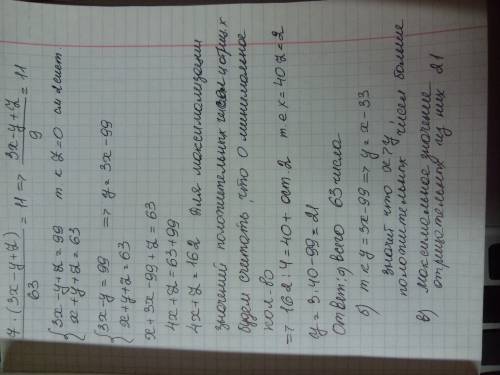 7·(3x-y+z)/63 = 11 => (3x-y+z)/9 = 11
{3x-y+z=99 т к z=0 см лист
x+y+z=63
{3x-y=99 => y=3x-99
x+y+z=63
x+3x-99+z=63
4x+z=63+99
4x+z=162 для максимализации
значений положительных чисел
будем считать, что 0 минимальное
кол-во
=> 162:4=40+ ост. 2 т.е x=40 z=2
y=3·40-99=21
Ответ: а) всего 63 числа
б) т к y=3x-99 => y=x-33
значит что x>y,
положительных чисел больше
в) максимальное значение
отрицательных из них 21